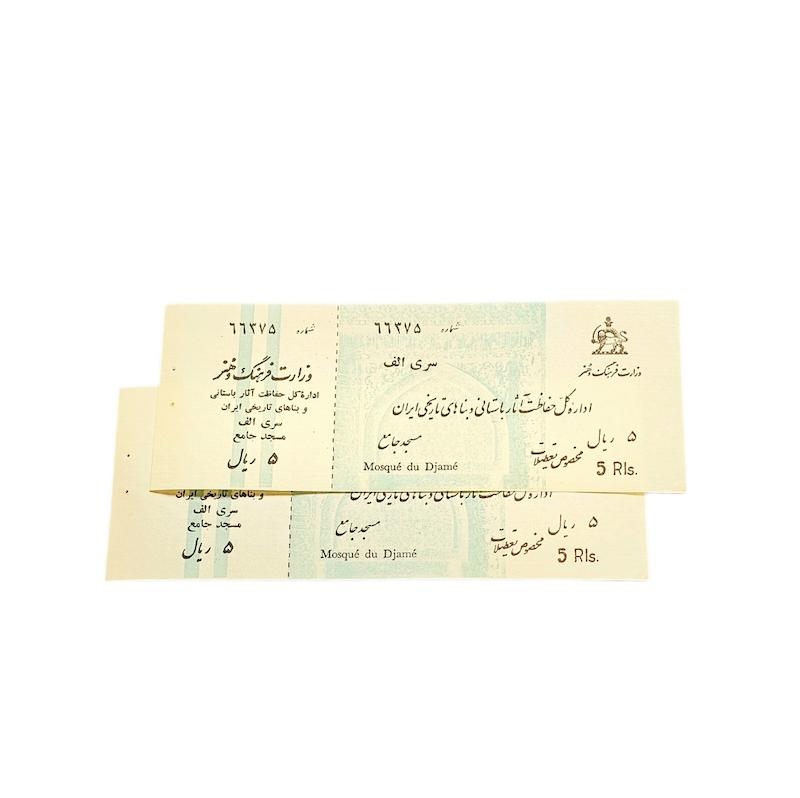 شماره ۶۶۳۷۵
وزارت فرهنگ و هنر
اداره کل حفاظت آثار باستانی
و بناهای تاریخی ایران
سری الف
مسجد جامع
۵ ریال
شماره ۶۶۳۷۵
سری الف
وزارت فرهنگ و هنر
اداره کل حفاظت آثار باستانی و بناهای تاریخی ایران
مسجد جامع
Mosqué du Djamé
۵ ریال
مخصوص تعطیلات
5 Rls.
و بناهای تاریخی ایران
سری الف
مسجد جامع
۵ ریال
اداره کل حفاظت آثار باستانی و بناهای تاریخی ایران
مسجد جامع
Mosqué du Djamé
۵ ریال
مخصوص تعطیلات
5 Rls.